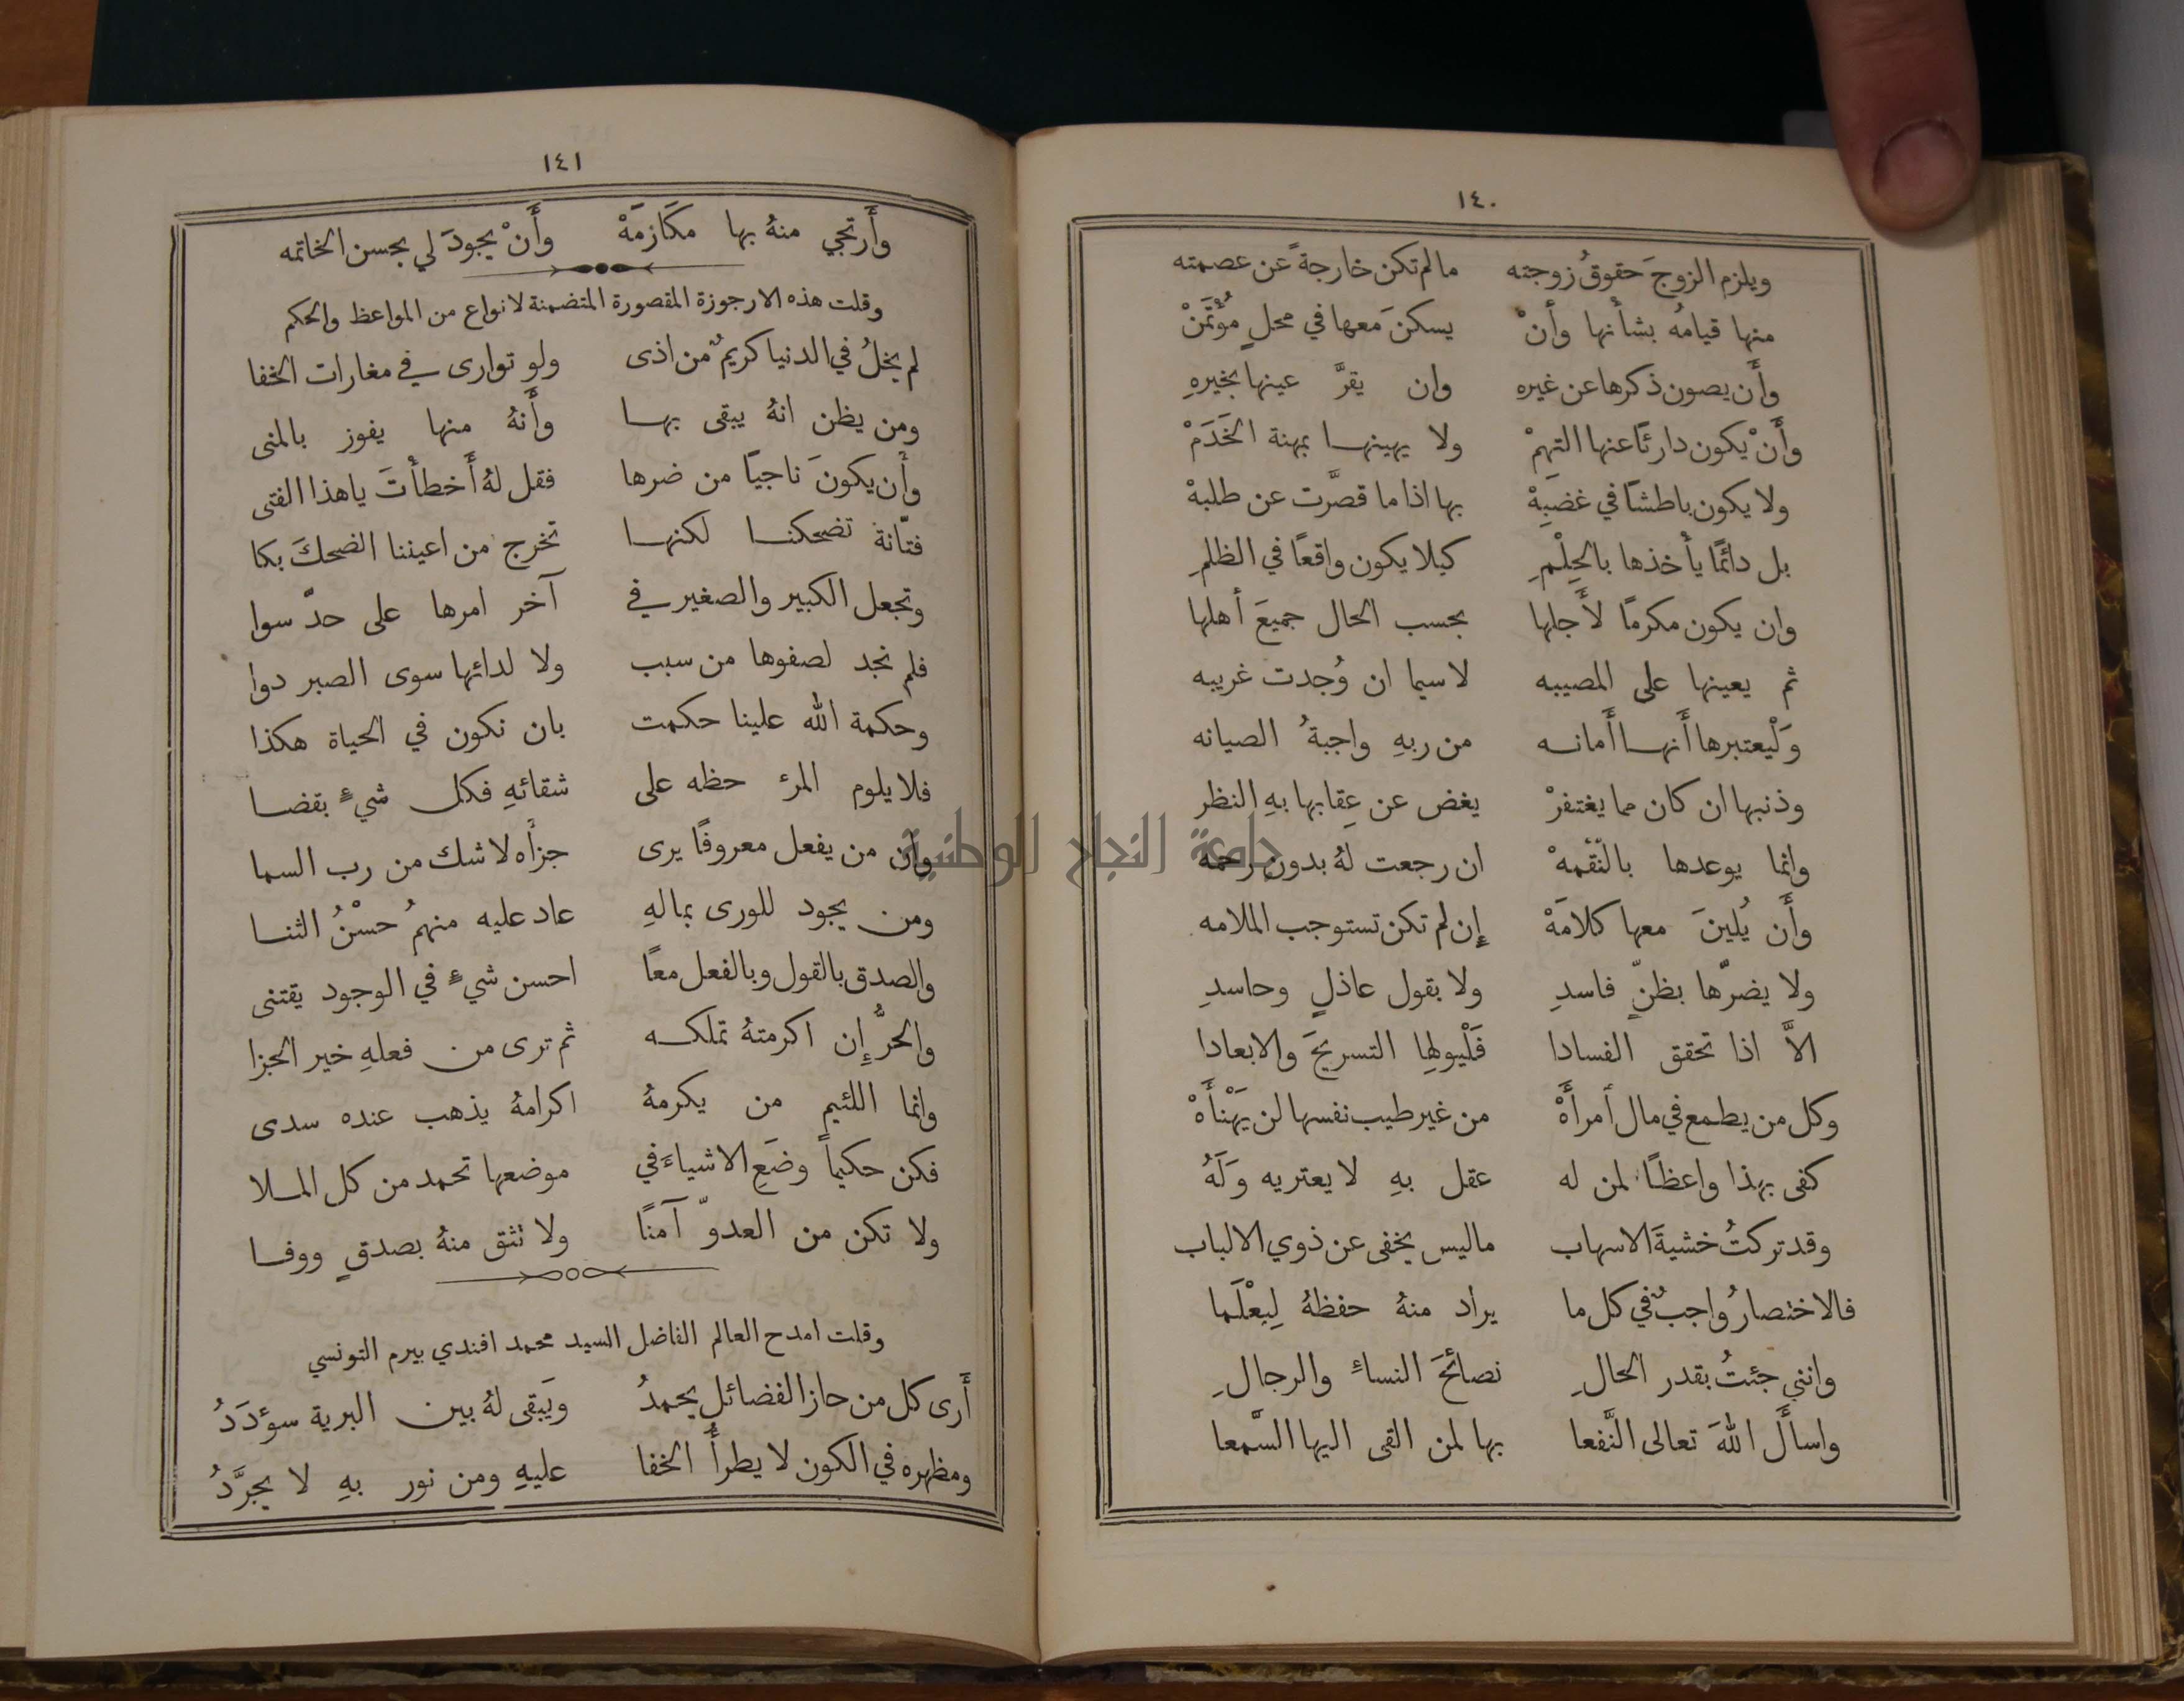 ١٤٠
ويلزم الزوجَ حقوقُ زوجته مالم تكن خارجةً عن عصمته
منها قيامهُ بشأنها وأنْ يسكنَ معها في محلٍ مُؤتَمَنْ
وأَن يصون ذكرها عن غيره وان يقرَّ عينها بخيرهِ
وأَنْ يكون دارئًا عنها التهمْ ولا يهينها بمهنة الخَدَمْ
ولا يكون باطشًا في غضبِهْ بها اذا ما قصَّرت عن طلبهْ
بل دائمًا يأخذها بالحِلْمِ كيلا يكون واقعًا في الظلمِ
وان يكون مكرمًا لأَجلها بحسب الحال جميعَ أهلها
ثم يعينها على المصيبه لاسيما ان وُجدت غريبه
وَلْيعتبرها أَنها أَمانه من ربهِ واجبةُ الصيانه
وذنبها ان كان مما يغتفرْ يغض عن عِقابها بهِ النظر
وانما يوعدها بالنّقمهْ ان رجعت لهُ بدون رحمه
وأَن يُلينَ معها كلامَهْ إِن لم تكن تستوجب الملامه
ولا يضرّها بظنّ فاسدِ ولا بقول عاذلٍ وحاسدِ
الاَّ اذا تحقق الفسادا فَلْيولِها التسريحَ والابعادا
وكل من يطمع في مال أمرأَهْ من غير طيب نفسها لن يَهْنأَهْ
كفى بهذا واعظًا لمن له عقل بهِ لا يعتريه وَلَهُ
وقد تركتُ خشيةَ الاسهاب ماليس يخفى عن ذوي الالباب
فالاختصارُ واجبٌ في كل ما يراد منهُ حفظهُ لِيعْلَما
وانني جئتُ بقدر الحالِ نصائحَ النساءِ والرجالِ
واسأَل اللهَ تعالى النَّفعا بها لمن القى اليها السَّمعا
١٤١
وأَرتجي منهُ بها مكَارمَهْ وأَنْ يجودَ لي بحسن الخاتمه
وقلت هذه الارجوزة المقصورة المتضمنة لانواع من المواعظ والحكم
لم يخلُ في الدنيا كريمٌ من اذى ولو توارى في مغارات الخفا
ومن يظن انهُ يبقى بها وأَنهُ منها يفوز بالمنى
وأَن يكونَ ناجيًا من ضرها فقل لهُ أَخطأْتَ ياهذا الفتى
فتّانة تضحكنا لكنها تخرج من اعيننا الضحكَ بكا
وتجعل الكبير والصغير في آخر امرها على حدّ سوا
فلم نجد لصفوها من سبب ولا لدائها سوى الصبر دوا
وحكمة الله علينا حكمت بان نكون في الحياة هكذا
فلا يلوم المرﺀ حظه على شقائهِ فكل شيءٍ بقضا
وان من يفعل معروفًا يرى جزأه لاشك من رب السما
ومن يجود للورى بمالهِ عاد عليه منهمُ حسْنُ الثنا
والصدق بالقول وبالفعل معًا احسن شيءٍ في الوجود يقتنى
والحرُّ إِن اكرمتهُ تملكه ثم ترى من فعلهِ خير الجزا
وانما اللئيم من يكرمهُ اكرامهُ يذهب عنده سدى
فكن حكيمًا وضَعِ الاشياءَ في موضعها تحمد من كل الملا
ولا تكن من العدوّ آمنًا ولا تثق منهُ بصدقٍ ووفا
وقلت امدح العالم الفاضل السيد محمد افندي بيرم التونسي
أَرى كل من حاز الفضائل يحمدُ ويَبقى لهُ بين البرية سوْدَدُ
ومظهره في الكون لا يطرأُ الخفا عليهِ ومن نور بهِ لا يجرَّدُ
جامعة النجاح الوطنية